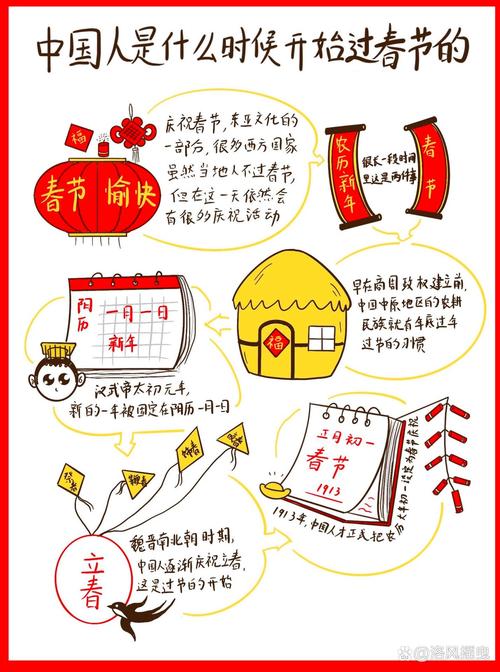 中国人是什么时候开始过春节的
福
春节 愉快
庆祝春节,东亚文化的
一部分,很多西方国家
虽然当地人不过春节,
但在这一天依然会
有很多庆祝活动
农历新年
很长一段时间
里这是两件事
春节
早在商国政权建立前,
中国中原地区的农耕
民族就有年底过年
过节的习惯
福
阳历
一月一日
新年
汉武帝太初元年,
新的一年被固定在阳历一月一日
鞭春
立春
魏晋南北朝时期,
中国人逐渐庆祝立春,
这是过节的开始
正月初一
春节
1913
1913年,中国人才正式把农历大年初一设定为春节庆祝